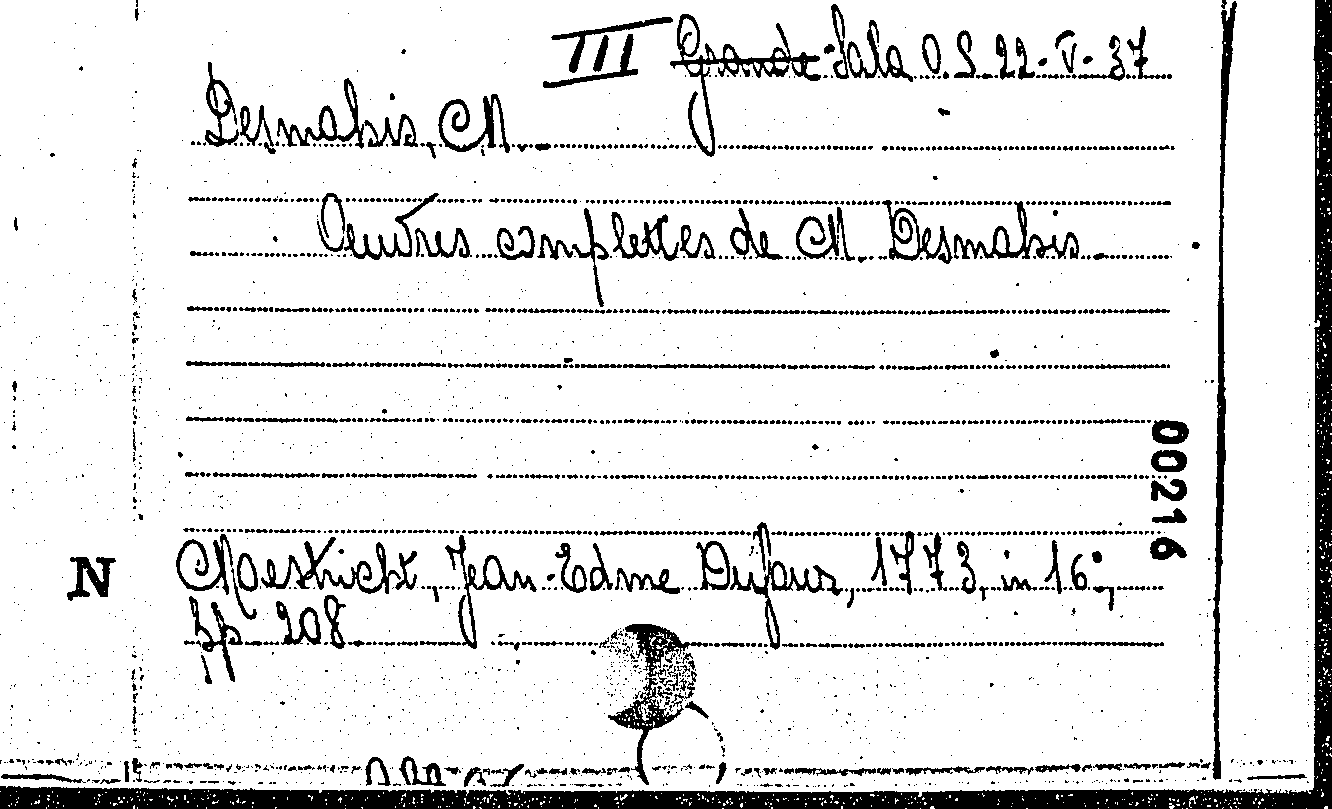 III Grande Sala O. S. 22-V-37
Desmahis, M.
Oeuvres complettes de M. Desmahis.
00216
N Maestricht, Jean-Edme Dufour, 1773, in 16°,
pp. 208.